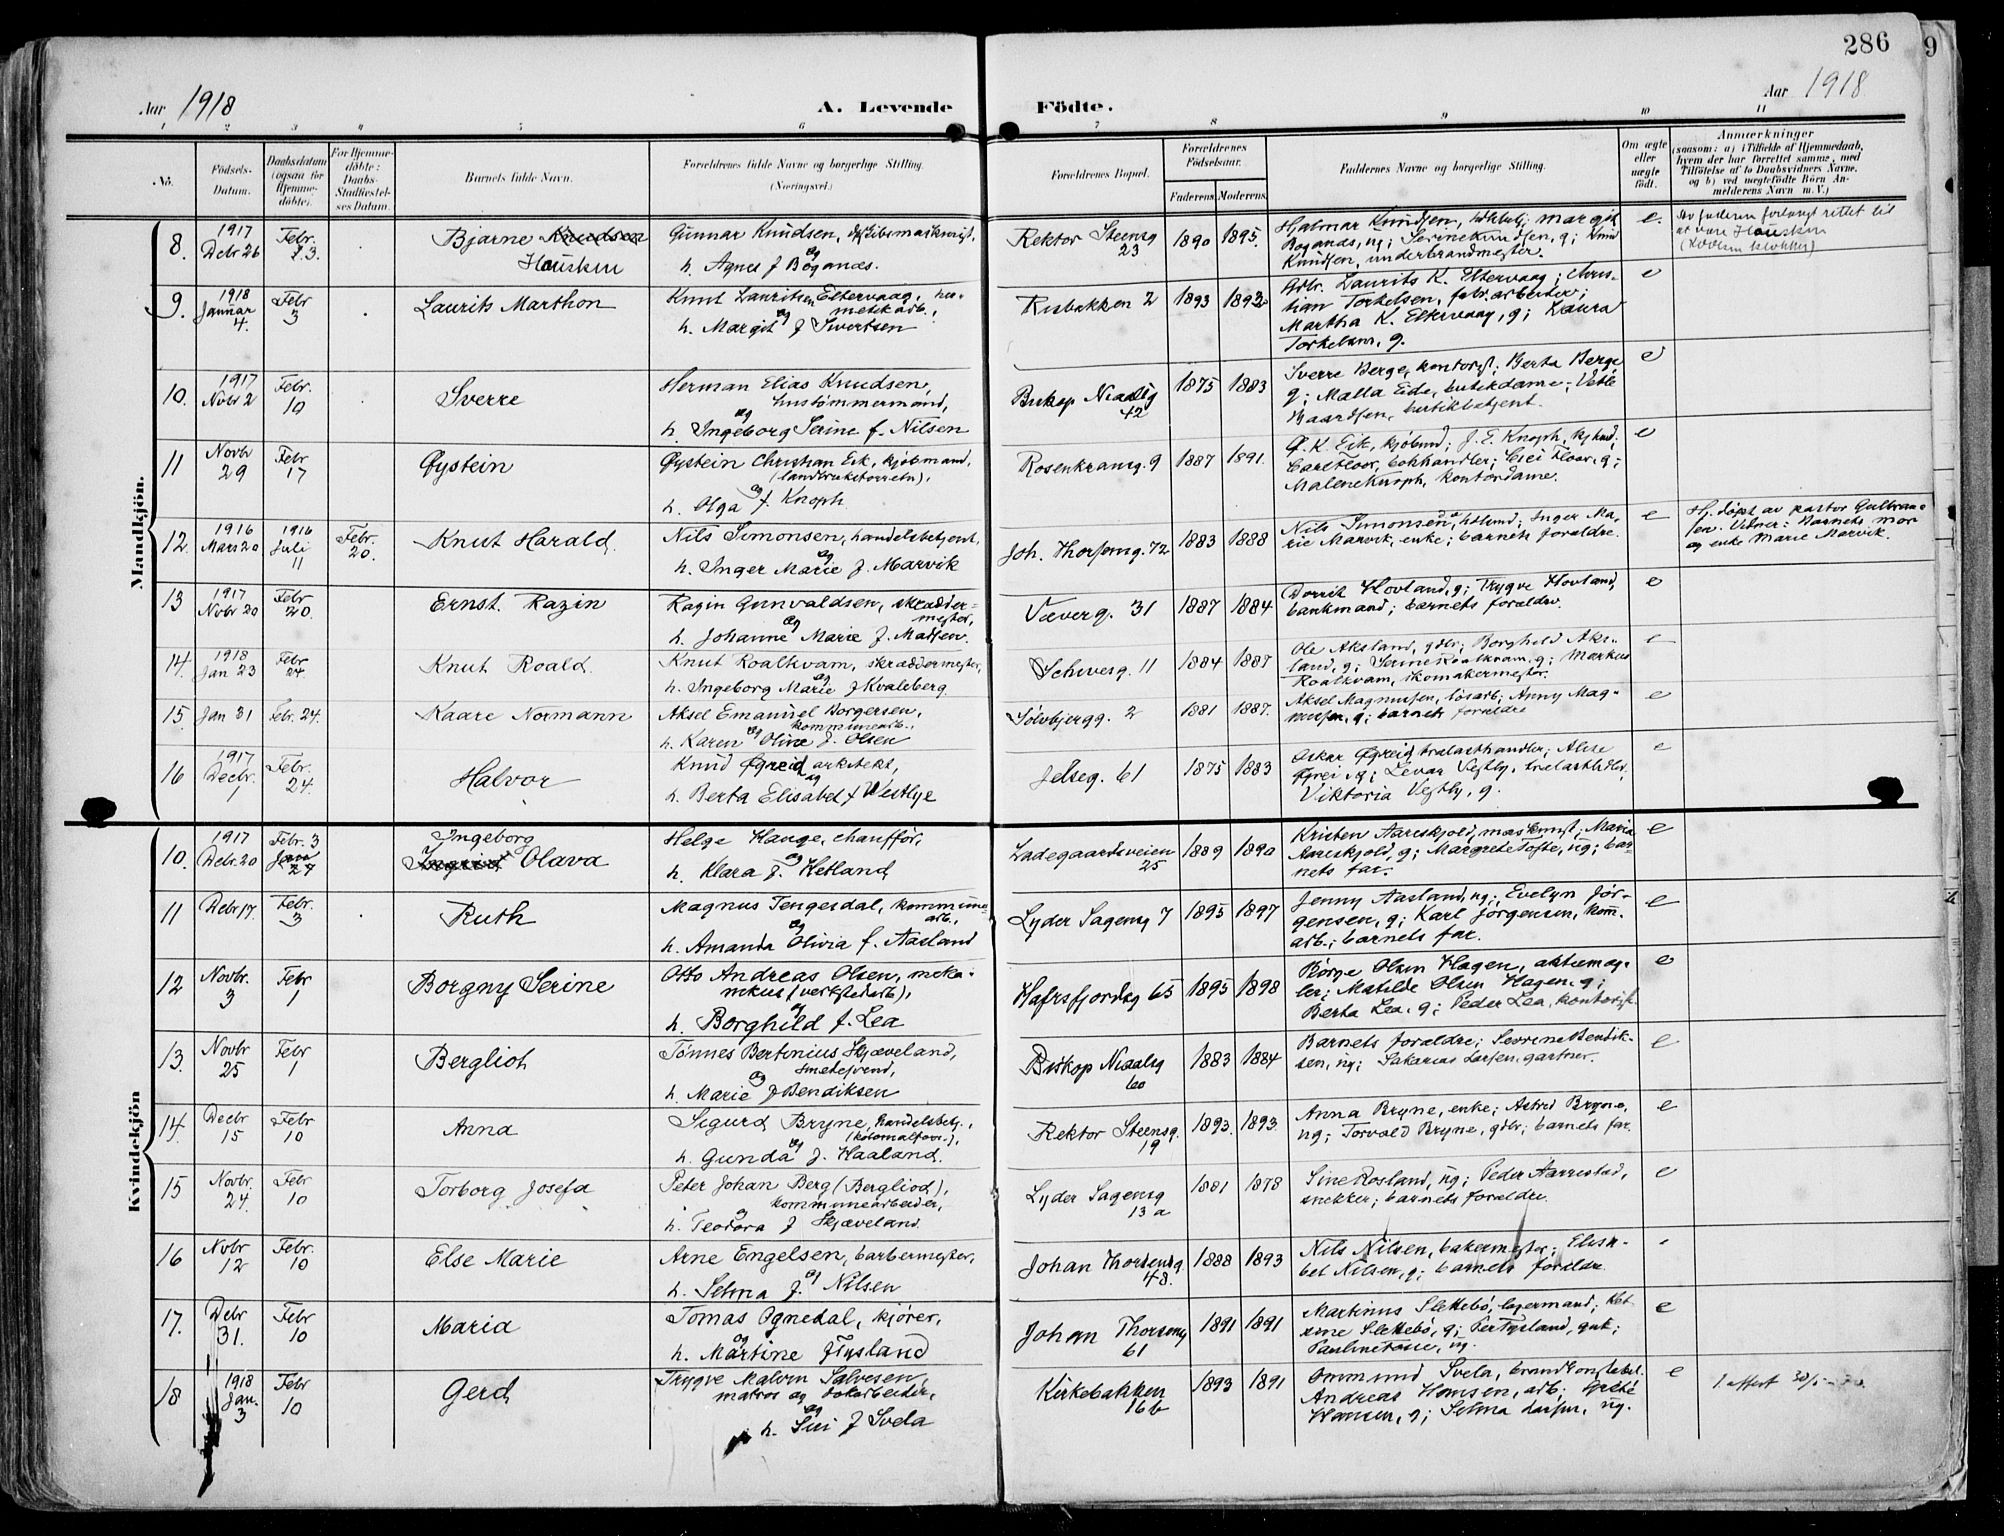 286 9
Aar 1918 A. Levende Födte. Aar 1918
1 2 3 4 5 6 7 8 9 10 11
No. Födsels-Datum. Daabsdatum (ogsaa for Hjemme-döbte). For Hjemme-döbte: Daabs-Stadfæstel-ses Datum. Barnets fulde Navn. Forældrenes fulde Navne og borgerlige Stilling. (Næringsvei.) Forældrenes Bopæl. Forældrenes Födselsaar. Faderens. Moderens. Faddernes Navne og borgerlige Stilling. Om ægte eller uægte födt. Anmærkninger (saasom: a) i Tilfælde af Hjemmedaab, hvem der har forrettet samme, med Tilföielse af to Daabsvidners Navne, og b) ved uægtefödte Börn An-melderens Navn m. V.)
Mandkjön.
8. 1917 Debr 26 Febr. 3. Bjarne Knudsen Hausken
Gunnar Knudsen,
h. Agnes f Bøganæs.
Rektor Steensg 23 1890 1895.
Hjalmar Knudsen, Margit
Bøganæs, ug; Serine Knudsen, g; Knud
Knudsen, underbrandmester. e.
Av faderen forlangt rettet til
at være Hausken
9. 1918 Januar 4. Febr 3 Laurits Marthon
Knut Lauritsen Eltervaag, her-
metikarb.,
og
h. Margit f Sivertsen
Risbakken 2 1893 1892
Gdbr. Laurits K. Eltervaag; Chris-
tian Torkelsen, fabr.arbeider;
Martha K. Eltervaag, g; Laura
Torkelsen, g. e
10. 1917 Novbr 2 Febr. 10 Sverre
Herman Elias Knudsen,
hustømmermand,
og
h. Ingeborg Serine f. Nilsen
Biskop Niaalsg 42 1875 1883
Sverre Berge, kontorist; Berta Berge
g; Malla Eide, butikdame; Vetle
Baardsen, butikbetjent. e
11 Novbr 29 Febr 17 Øystein
Øystein Christian Eik, kjøbmand,
(landbruksforretn),
og
h. Olga f. Knoph
Rosenkransg. 9 1887 1891.
Ø. K. Eik, kjøbmd; J. E. Knoph, kjøbmd;
Carl Floor, bokhandler; Floor, g;
Malene Knoph, kontordame. e
12. 1916 Mars 20 1916 Juli 11 Febr. 20. Knut Harald.
Nils Simonsen, handelsbetjent,
og
h. Inger Marie f. Marvik
Joh. Thorsensg. 72 1883 1888
Nils Simonsen, Inger Ma-
rie Marvik, enke; barnets foreldre. e
Hj. døpt av pastor Gulbran-
sen. Vidner: Barnets mor
og enke Marie Marvik.
13 1917 Novbr 20 Febr 20. Ernst Ragin
Ragin Gunvaldsen, skrædder-
mester,
og
h. Johanne Marie f. Madsen.
Væverg. 31 1887 1884
Dorrit Hovland, g; Trygve Hovland,
bankmand; barnets foreldre. e
14. 1918 Jan 23 Febr 24. Knut Roald.
Knut Roalkvam, skræddermester,
og
h. Ingeborg Marie f Kvaleberg
11 1884 1887
Ole Aksland, gdbr; Borghild Aks-
land, g; Serine Roalkvam, g; Markus
Roalkvam, skomakermester. e
15. Jan 31 Febr. 24. Kaare Normann
Aksel Emanuel Borgersen,
kommunearb.,
og
h. Karen Oline f. Olsen
Sølvbjergg. 2 1881 1887.
Aksel Magnussen, løsarb; Anny Mag-
nussen, g; barnets foreldre e
16 1917 Decbr. 1 Febr. 24. Halvor
Knud Øgreid, arkitekt,
og
h. Berta Elisabet f Westlye
Jelseg. 61 1875 1883
Oskar Øgreid trelasthandler; Alise
Øgrei, g; Levar Vestly, trelasthdlr;
Viktoria Vestly, g. e
Kvindekjön
10. 1917 Debr. 20 Febr. 3 Jan 27 Ingeborg Ingrid Olava
Helge Hauge, chauffør,
og
h. Klara f. Hetland
Ladegaardsveien 25 1889 1890
Kristen Aareskjold, maskinist; Maria
Aareskjold, g; Margrete Tofte, ug; bar-
nets far. e
11 Debr 17. Febr. 3 Ruth
Magnus Tengesdal, kommune-
arb.,
og
h. Amanda Olivia f. Aasland
Lyder Sagensg 7 1895 1897
Jenny Aasland, ug; Evelyn Jør-
gensen, g; Karl Jørgensen, kom.
arb.; barnets far. e
12 Novbr. 3 Febr 1 Borgny Serine
Otto Andreas Olsen, meka-
nikus (verkstedarb),
og
h. Borghild f. Lea
Hafrsfjordsg 65 1895 1898
Børge Olsen Hagen, aktiemæg-
ler; Matilde Olsen Hagen, g;
Berta Lea, g; Peder Lea, kontorist. e
13. Novbr 25 Febr 1 Bergliot
Tønnes Bertinius Skjæveland,
smedesvend,
og
h. Marie f Bendiksen
Biskop Niaalsg 60 1883 1884
Barnets foreldre; Severine Bendik-
sen, ug; Sakarias Larsen, gartner. e
14. Decbr 15 Febr 10 Anna
Sigurd Bryne, handelsbetj.,
(kolonialforr.),
og
h. Gunda f. Haaland.
Rektor Steensg. 19 1893. 1893.
Anna Bryne, enke; Astrid Bryne,
ug; Torvald Bryne, gdbr; barnets far. e
15 Novbr. 24. Febr 10 Torborg Josefa
Peter Johan Berg (Bergliod),
kommunearbeider,
og
h. Teodora f Skjæveland.
Lyder Sagensg 13 a 1881 1878
Sine Rosland, ug; Peder Aarrestad,
snekker; barnets foreldre. e
16 Novbr 12 Febr. 10 Else Marie
Arne Engelsen, barbermester,
og
h. Selma f. Nilsen
Johan Thorsensg 48. 1888 1893
Nils Nilsen, bakermester; Elisa-
bet Nilsen, g; barnets foreldre. e
17. Debr 31. Febr 10 Maria
Tomas Ognedal, kjører,
og
h. Martine f Tysland
Johan Thorsensg 61 1891 1891
Martinus Slettebø, lagermand;
Slettebø, g; Per Tysland, gut;
Pauline ug. e
18 1918 Jan. 3 Febr 10 Gerd
Trygve Malvin Salvesen,
matros og dokarbeider,
og
h. Siri f Svela
Kirkebakken 16 b 1893 1891
Ommund Svela, brandkonstabel
Andreas Hansen, arb;
Hansen, g; Selma Larsen, ug. e
1. attest 30/5